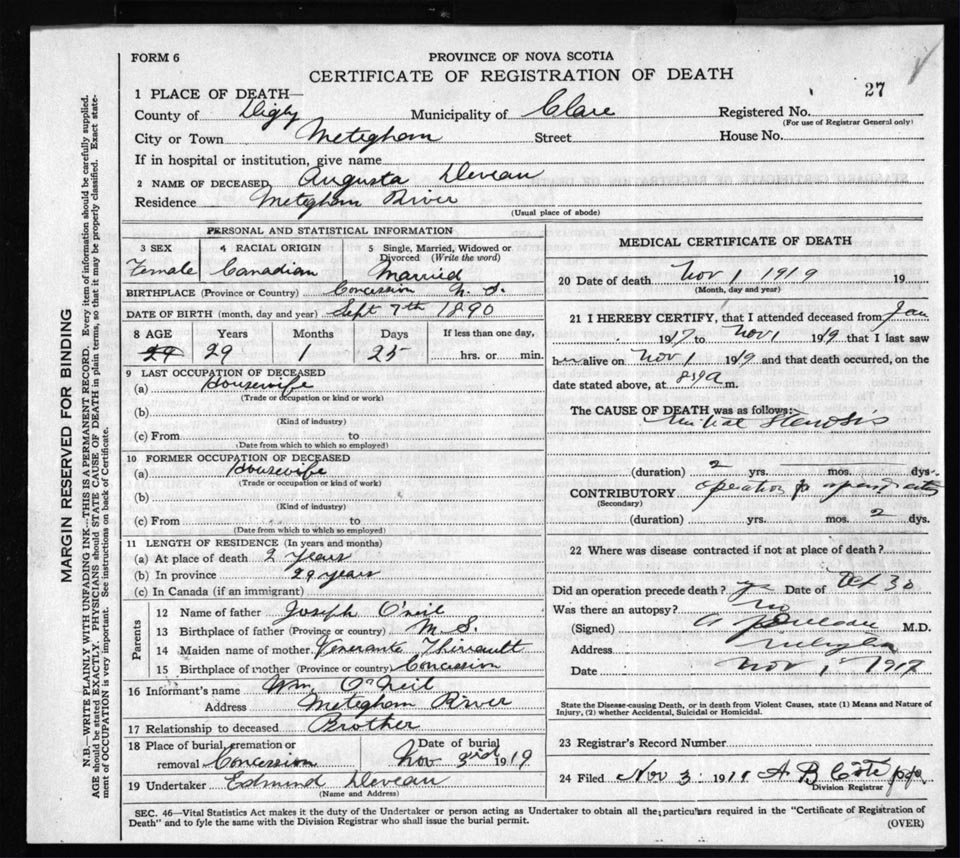 FORM 6
PROVINCE OF NOVA SCOTIA
CERTIFICATE OF REGISTRATION OF DEATH
27
1 PLACE OF DEATH—
County of Digby Municipality of Clare Registered No.
(For use of Registrar General only)
City or Town Meteghan Street House No.
If in hospital or institution, give name
2 NAME OF DECEASED Augusta Deveau
Residence Meteghan River
(Usual place of abode)
PERSONAL AND STATISTICAL INFORMATION
3 SEX 4 RACIAL ORIGIN 5 Single, Married, Widowed or Divorced (Write the word)
Female Canadian Married
BIRTHPLACE (Province or Country) Concession N. S.
DATE OF BIRTH (month, day and year) Sept 7th 1890
8 AGE Years Months Days If less than one day,
29 29 1 25 hrs. or min.
9 LAST OCCUPATION OF DECEASED
(a) Housewife
(Trade or occupation or kind or work)
(b)
(Kind of industry)
(c) From to
(Date from which to which so employed)
10 FORMER OCCUPATION OF DECEASED
(a) Housewife
(Trade or occupation or kind or work)
(b)
(Kind of industry)
(c) From to
(Date from which to which so employed)
11 LENGTH OF RESIDENCE (In years and months)
(a) At place of death 2 years
(b) In province 29 years
(c) In Canada (if an immigrant)
Parents
12 Name of father Joseph O'neil
13 Birthplace of father (Province or country) N. S.
14 Maiden name of mother Venerante Thiriault
15 Birthplace of mother (Province or country) Concession
16 Informant's name Wm. O'Neil
Address Meteghan River
17 Relationship to deceased Brother
18 Place of burial, cremation or removal Concession Date of burial Nov 3rd 1919
19 Undertaker Edmund Deveau
(Name and Address)
MEDICAL CERTIFICATE OF DEATH
20 Date of death Nov 1 1919 19
(Month, day and year)
21 I HEREBY CERTIFY, that I attended deceased from Jan
1917 to Nov 1 1919 that I last saw
h alive on Nov 1 1919 and that death occurred, on the
date stated above, at m.
The CAUSE OF DEATH was as follows:
Mitral Stenosis
(duration) 2 yrs. mos. dys.
CONTRIBUTORY operation for
(Secondary)
(duration) yrs. mos. 2 dys.
22 Where was disease contracted if not at place of death?
Did an operation precede death? yes Date of Oct 30
Was there an autopsy? no
(Signed) M.D.
Address Meteghan
Date Nov 1 1919
State the Disease-causing Death, or in death from Violent Causes, state (1) Means and Nature of
Injury, (2) whether Accidental, Suicidal or Homicidal.
23 Registrar's Record Number
24 Filed Nov 3 1919 A B Côté
Division Registrar
SEC. 46—Vital Statistics Act makes it the duty of the Undertaker or person acting as Undertaker to obtain all the particulars required in the "Certificate of Registration of
Death" and to fyle the same with the Division Registrar who shall issue the burial permit.
(OVER)
MARGIN RESERVED FOR BINDING
N.B.—WRITE PLAINLY WITH UNFADING INK—THIS IS A PERMANENT RECORD. Every item of information should be carefully supplied.
AGE should be stated EXACTLY. PHYSICIANS should STATE CAUSE OF DEATH in plain terms, so that it may be properly classified. Exact state-
ment of OCCUPATION is very important. See instructions on back of Certificate.